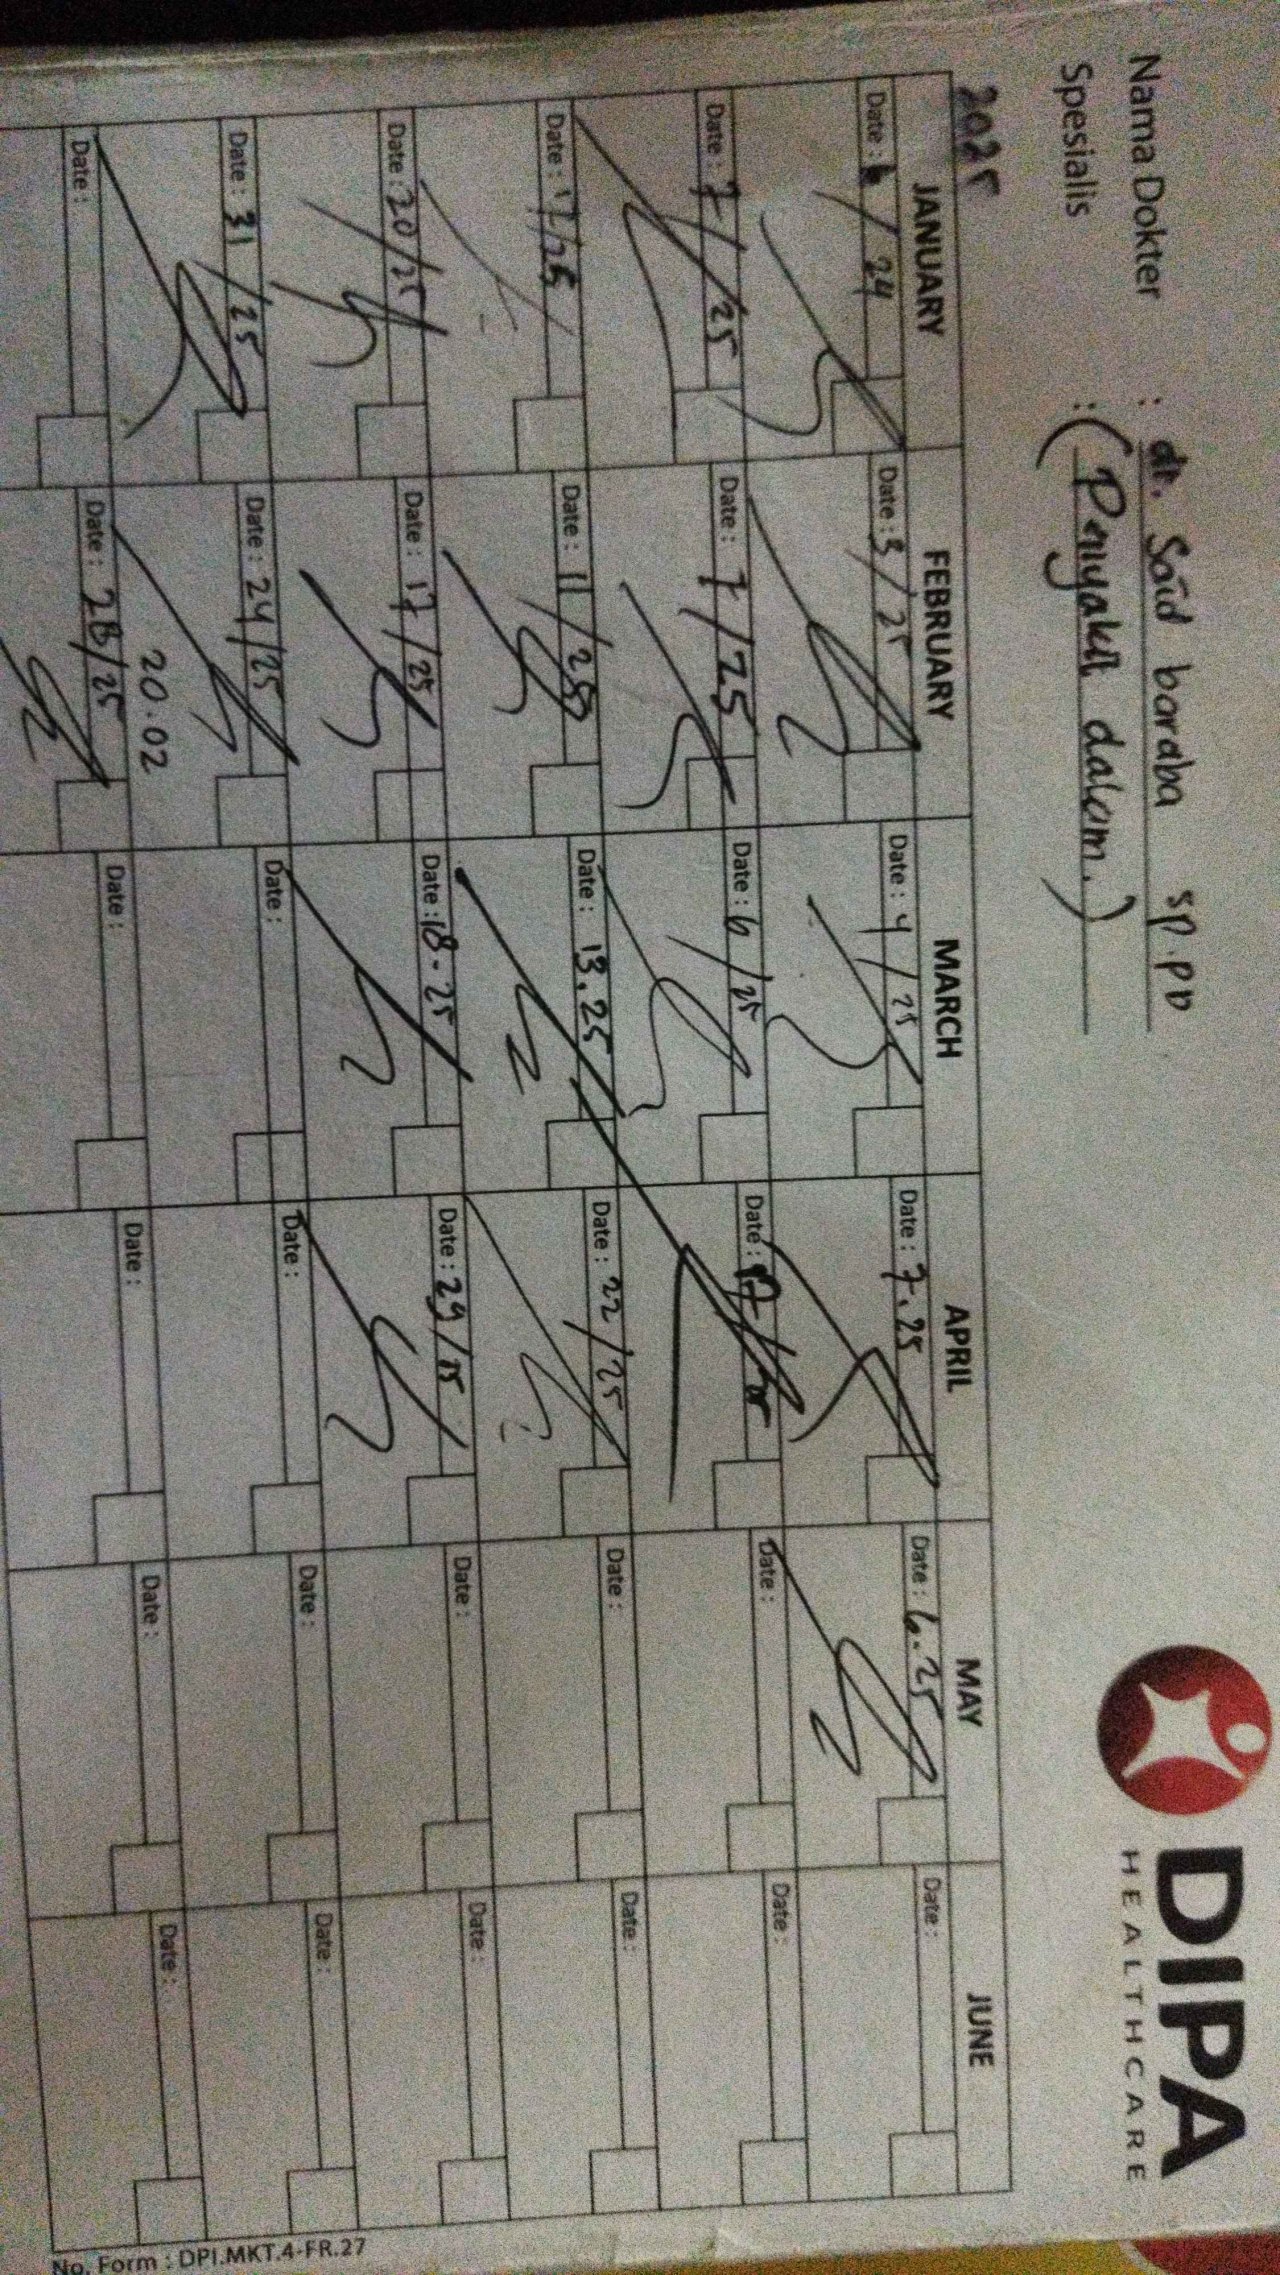 DIPA
HEALTHCARE
Nama Dokter : dr. Said baraba sp.PD
Spesialis : (Penyakit dalam.)
2025
JANUARY FEBRUARY MARCH APRIL MAY JUNE
Date : 6/24 Date : 3/25 Date : 4/25 Date : 7.25 Date : 6.25 Date :
Date : 7/25 Date : 7/25 Date : 6/25 Date : Date : Date :
Date : 17/25 Date : 11/25 Date : 13.25 Date : 22/25 Date : Date :
Date : 20/25 Date : 17/25 Date : 18-25 Date : 29/25 Date : Date :
Date : 31/25 Date : 24/25 Date : Date : Date : Date :
20.02
Date : Date : 28/25 Date : Date : Date : Date :
No. Form : DPI.MKT.4-FR.27